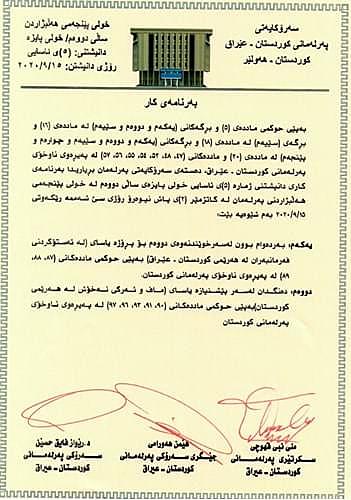 سەرۆکایەتی
پەرلەمانی کوردستان - عێراق
کوردستان - هەولێر
خولی پێنجەمی هەڵبژاردن
ساڵی دووەم/ خولی پایزە
دانیشتنی: (5)ی ئاسایی
رۆژی دانیشتن: ٢٠٢٠/٩/١٥
بەرنامەی کار
بەپێی حوکمی ماددەی (٥) و بڕگەکانی (یەکەم و دووەم و سێیەم) لە ماددەی (١٦) و
بڕگەی (سێیەم) لە ماددەی (١٨) و بڕگەکانی (یەکەم و دووەم و سێیەم و چوارەم و
پێنجەم) لە ماددەی (٢٠) و ماددەکانی (٤٧، ٤٨، ٥٢، ٥٤، ٥٥، ٥٦، ٥٧) لە پەیڕەوی ناوخۆی
پەرلەمانی کوردستان - عێراق، دەستەی سەرۆکایەتی پەرلەمان بڕیاریدا بەرنامەی
کاری دانیشتنی ژمارە (٥)ی ئاسایی خولی پایزەی ساڵی دووەم لە خولی پێنجەمی
هەڵبژاردنی پەرلەمان لە کاتژمێر (2)ی پاش نیوەڕۆ رۆژی سێ شەممە رێکەوتی
٢٠٢٠/٩/١٥ بەم شێوەیە بێت:
یەکەم: بەردەوام بوون لەسەر خوێندنەوەی دووەم بۆ پڕۆژە یاسای (لە ئەستۆگرتنی
فەرمانبەران لە هەرێمی کوردستان - عێراق) بەپێی حوکمی ماددەکانی (٨٧، ٨٨،
٨٩) لە پەیڕەوی ناوخۆی پەرلەمانی کوردستان.
دووەم: دەنگدان لەسەر پێشنیازە یاسای (ماف و ئەرکی نەخۆش لە هەرێمی
کوردستان) بەپێی حوکمی ماددەکانی (٩٠، ٩١، ٩٣، ٩٦، ٩٧) لە پەیڕەوی ناوخۆی
پەرلەمانی کوردستان
د. رێواز فایق حسێن
سەرۆکی پەرلەمانی
کوردستان - عێراق
هێمن هەورامی
جێگری سەرۆکی پەرلەمانی
کوردستان - عێراق
منی نبی قهوچی
سکرتێری پەرلەمانی
کوردستان - عێراق